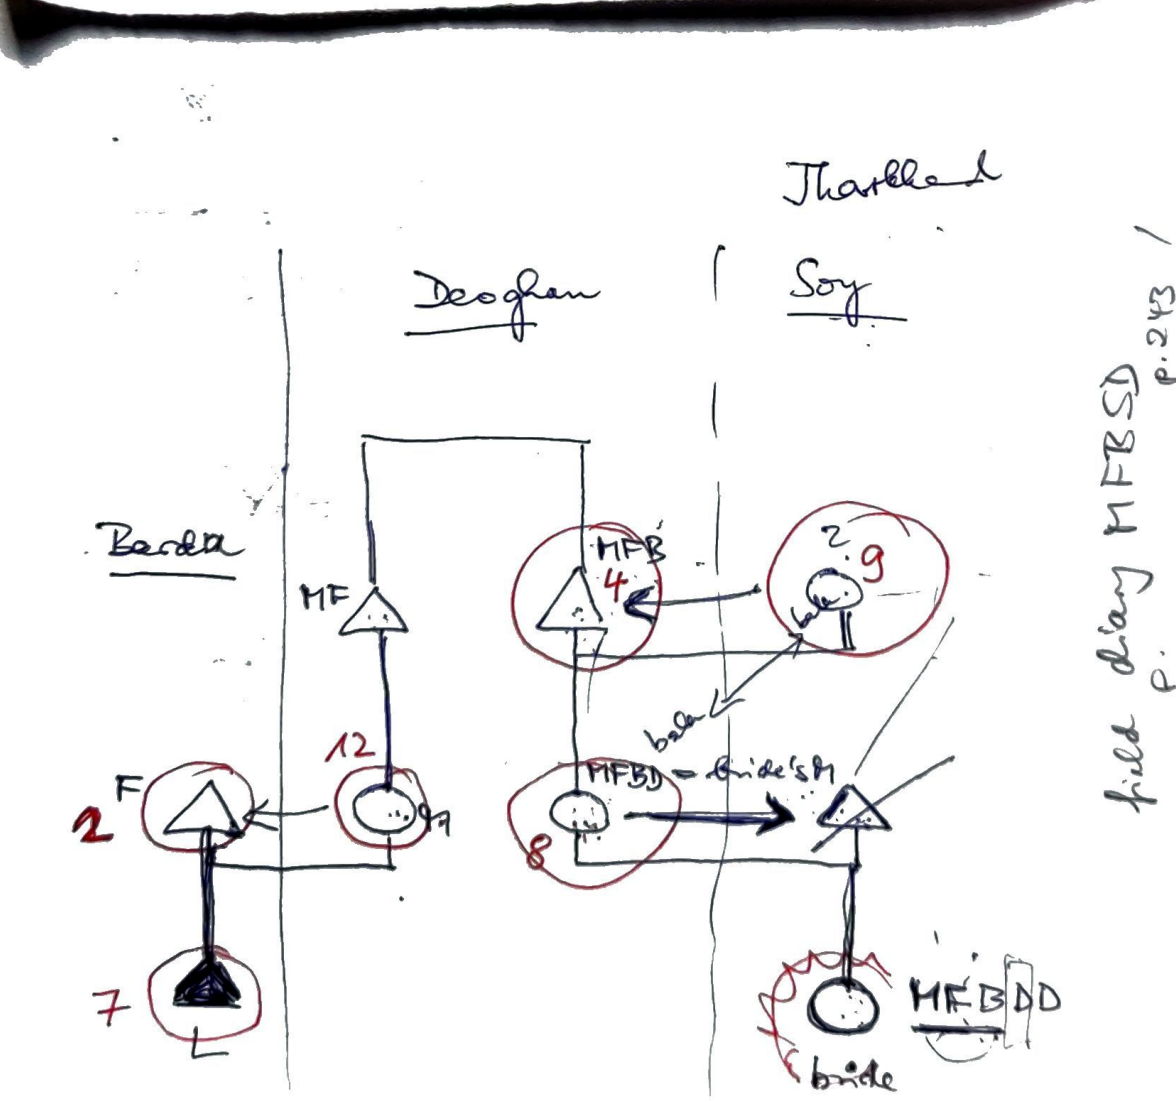 Jharkhand
Deoghan
Soy
Barda
MF
MFB
4
2.
9
bala
bala
F
2
12
M
MFBD = bride's M
8
7
L
MFBDD
bride
field diary MFBSD
p. p. 243 /